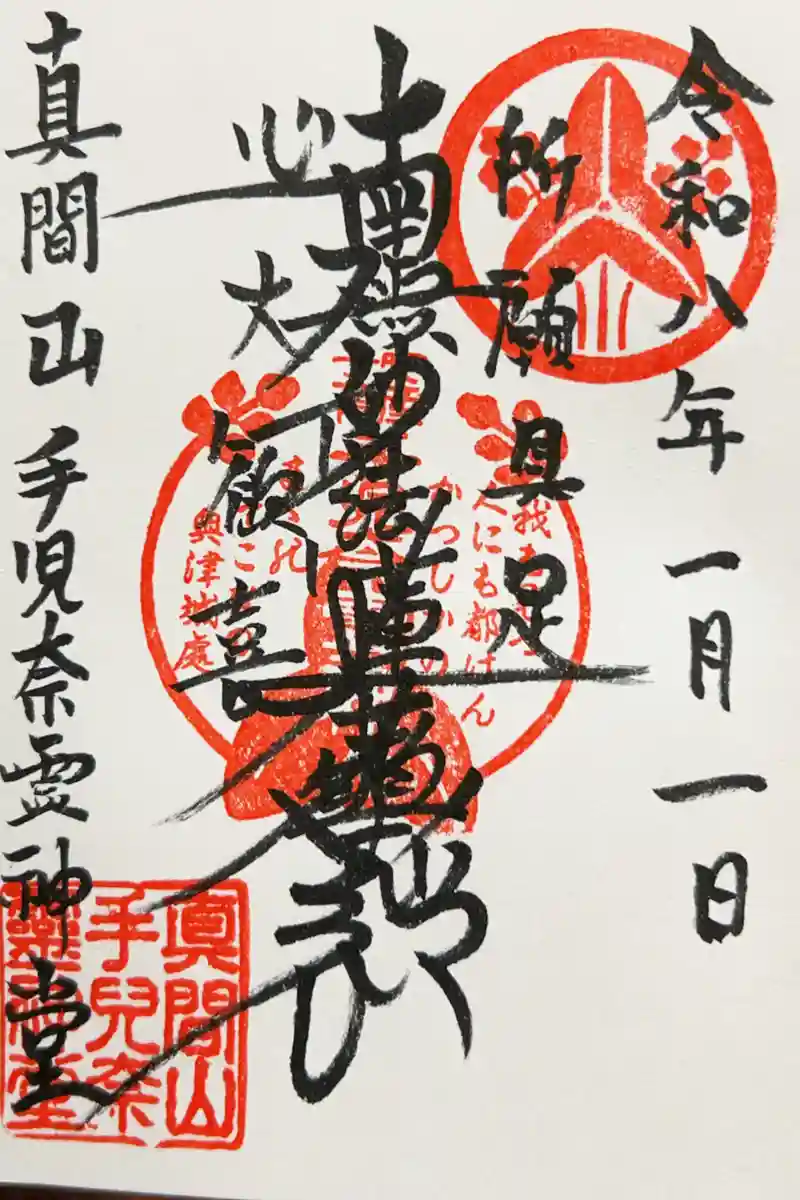 令和八年一月一日
所願具足
南無妙法蓮華経
心大歓喜
真間山手児奈霊神堂
我も見つ
人にも都げん
かつしかの
興津城處
真間山
手兒奈
靈神堂